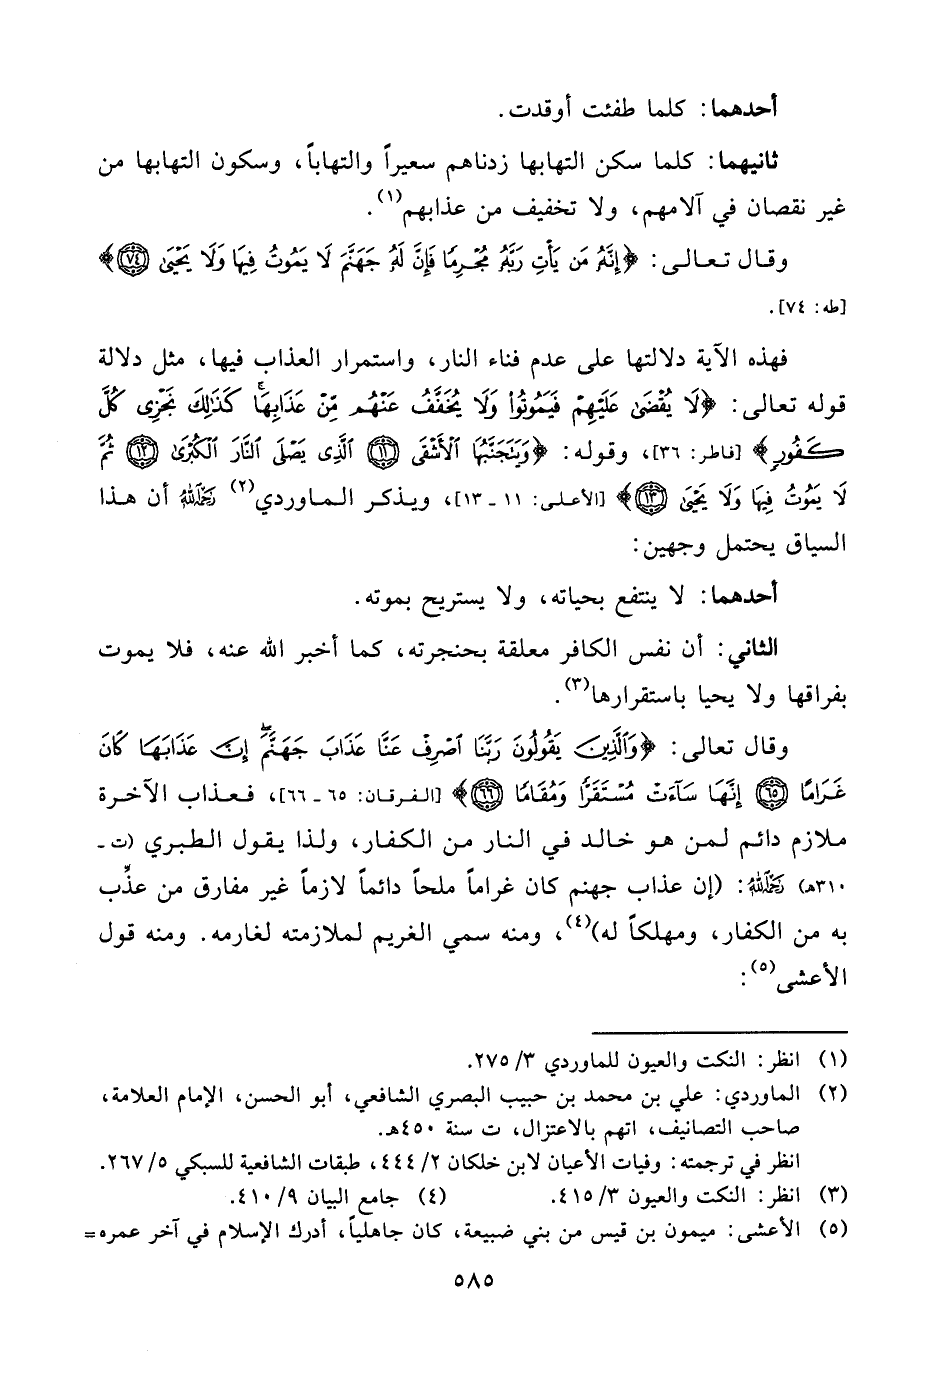 أحدهما: كلما طفئت أوقدت.
ثانيهما: كلما سكن التهابها زدناهم سعيراً والتهاباً، وسكون التهابها من
غير نقصان في آلامهم، ولا تخفيف من عذابهم(١).
وقال تعالى: ﴿إِنَّهُۥ مَن يَأْتِ رَبَّهُۥ مُجْرِمًا فَإِنَّ لَهُۥ جَهَنَّمَ لَا يَمُوتُ فِيهَا وَلَا يَحْيَىٰ ۝٧٤﴾
[طه: ٧٤].
فهذه الآية دلالتها على عدم فناء النار، واستمرار العذاب فيها، مثل دلالة
قوله تعالى: ﴿لَا يُقْضَىٰ عَلَيْهِمْ فَيَمُوتُوا۟ وَلَا يُخَفَّفُ عَنْهُم مِّنْ عَذَابِهَا ۚ كَذَٰلِكَ نَجْزِى كُلَّ
كَفُورٍ﴾ [فاطر: ٣٦]، وقوله: ﴿وَيَتَجَنَّبُهَا ٱلْأَشْقَى ۝١١ ٱلَّذِى يَصْلَى ٱلنَّارَ ٱلْكُبْرَىٰ ۝١٢ ثُمَّ
لَا يَمُوتُ فِيهَا وَلَا يَحْيَىٰ ۝١٣﴾ [الأعلى: ١١ ـ ١٣]، ويذكر الماوردي(٢) رحمه الله أن هذا
السياق يحتمل وجهين:
أحدهما: لا ينتفع بحياته، ولا يستريح بموته.
الثاني: أن نفس الكافر معلقة بحنجرته، كما أخبر الله عنه، فلا يموت
بفراقها ولا يحيا باستقرارها(٣).
وقال تعالى: ﴿وَٱلَّذِينَ يَقُولُونَ رَبَّنَا ٱصْرِفْ عَنَّا عَذَابَ جَهَنَّمَ ۖ إِنَّ عَذَابَهَا كَانَ
غَرَامًا ۝٦٥ إِنَّهَا سَآءَتْ مُسْتَقَرًّا وَمُقَامًا ۝٦٦﴾ [الفرقان: ٦٥ ـ ٦٦]، فعذاب الآخرة
ملازم دائم لمن هو خالد في النار من الكفار، ولذا يقول الطبري (ت ـ
٣١٠هـ) رحمه الله: (إن عذاب جهنم كان غراماً ملحاً دائماً لازماً غير مفارق من عذّب
به من الكفار، ومهلكاً له)(٤)، ومنه سمي الغريم لملازمته لغارمه. ومنه قول
الأعشى(٥):
(١) انظر: النكت والعيون للماوردي ٣/ ٢٧٥.
(٢) الماوردي: علي بن محمد بن حبيب البصري الشافعي، أبو الحسن، الإمام العلامة،
صاحب التصانيف، اتهم بالاعتزال، ت سنة ٤٥٠هـ.
انظر في ترجمته: وفيات الأعيان لابن خلكان ٢/ ٤٤٤، طبقات الشافعية للسبكي ٥/ ٢٦٧.
(٣) انظر: النكت والعيون ٣/ ٤١٥. (٤) جامع البيان ٩/ ٤١٠.
(٥) الأعشى: ميمون بن قيس من بني ضبيعة، كان جاهلياً، أدرك الإسلام في آخر عمره=
٥٨٥